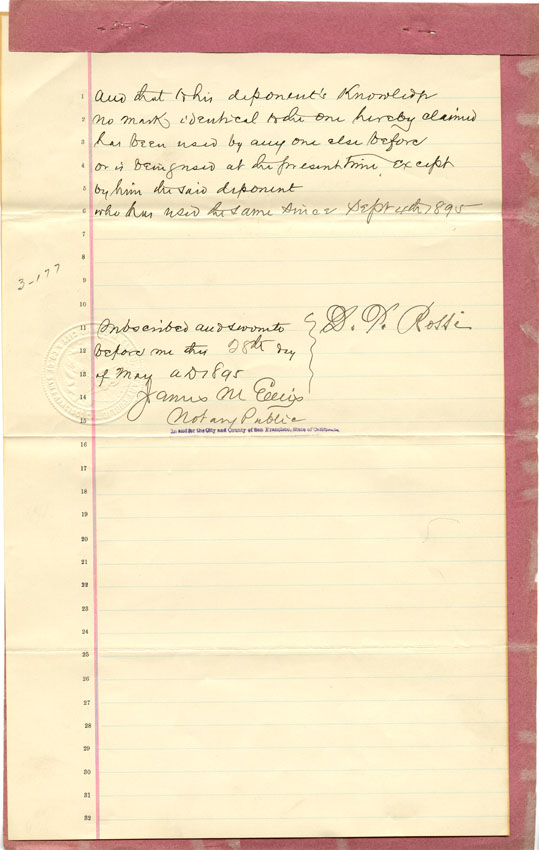 1 And that to his deponent's Knowledge
2 no mark identical to the one hereby claimed
3 has been used by any one else before
4 or is being used at the present time, except
5 by him the said deponent
6 who has used the same since Sept 4th 1895
7
8
3-177
9
10
11 Subscribed and sworn to D. V. Rossi
12 before me this 28th day
13 of May AD 1895
14 James M Ellis
15 Notary Public
In and for the City and County of San Francisco, State of California.
16
17
18
19
20
21
22
23
24
25
26
27
28
29
30
31
32